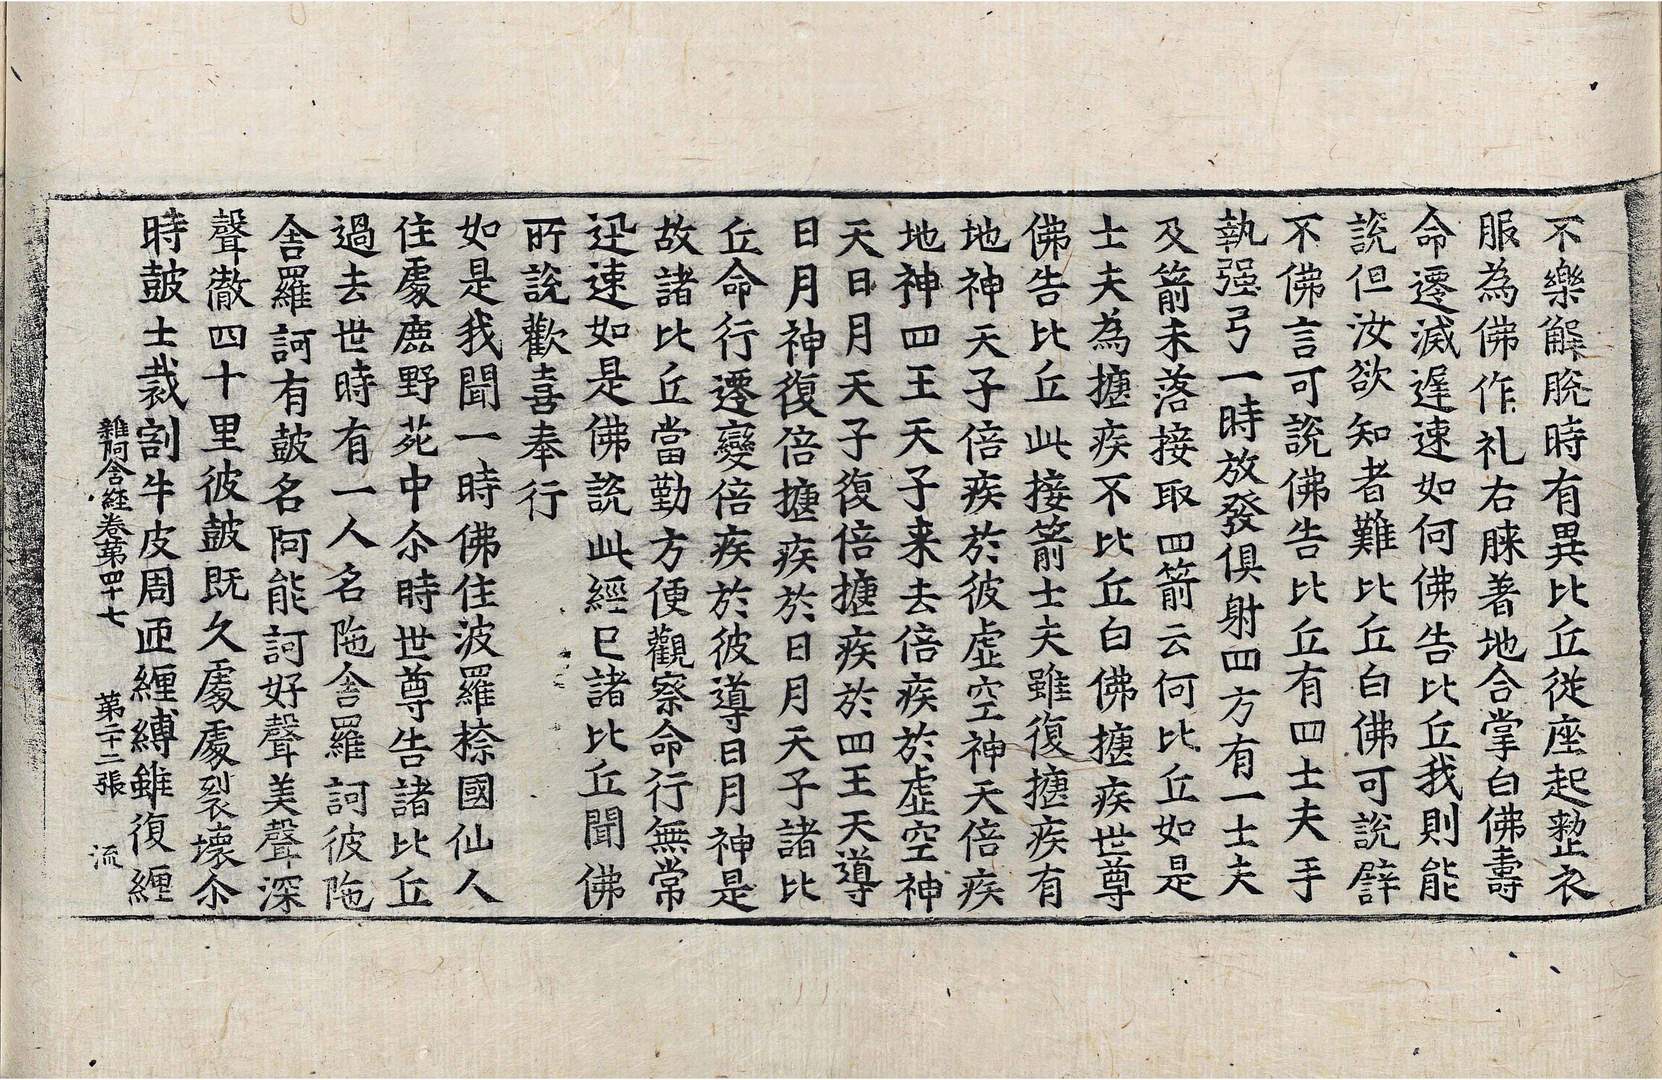 不樂解脫時有異比丘從座起整衣
服為佛作礼右膝著地合掌白佛壽
命遷滅遅速如何佛告比丘我則能
說但汝欲知者難比丘白佛可說譬
不佛言可說佛告比丘有四士夫手
執强弓一時放發俱射四方有一士夫
及箭未落接取四箭云何比丘如是
士夫為揵疾不比丘白佛揵疾世尊
佛告比丘此接箭士夫雖復揵疾有
地神天子倍疾於彼虛空神天倍疾
地神四王天子来去倍疾於虛空神
天日月天子復倍揵疾於四王天導
日月神復倍揵疾於日月天子諸比
丘命行遷變倍疾於彼導日月神是
故諸比丘當勤方便觀察命行無常
迅速如是佛說此經已諸比丘聞佛
所說歡喜奉行
如是我聞一時佛住波羅㮈國仙人
住處鹿野苑中尒時世尊告諸比丘
過去世時有一人名陁舍羅訶彼陁
舍羅訶有鼓名阿能訶好聲美聲深
聲徹四十里彼鼓既久處處裂壞尒
時鼓士裁割牛皮周匝纒縛雖復纒
雜阿含経卷第四十七 第二十二張 流